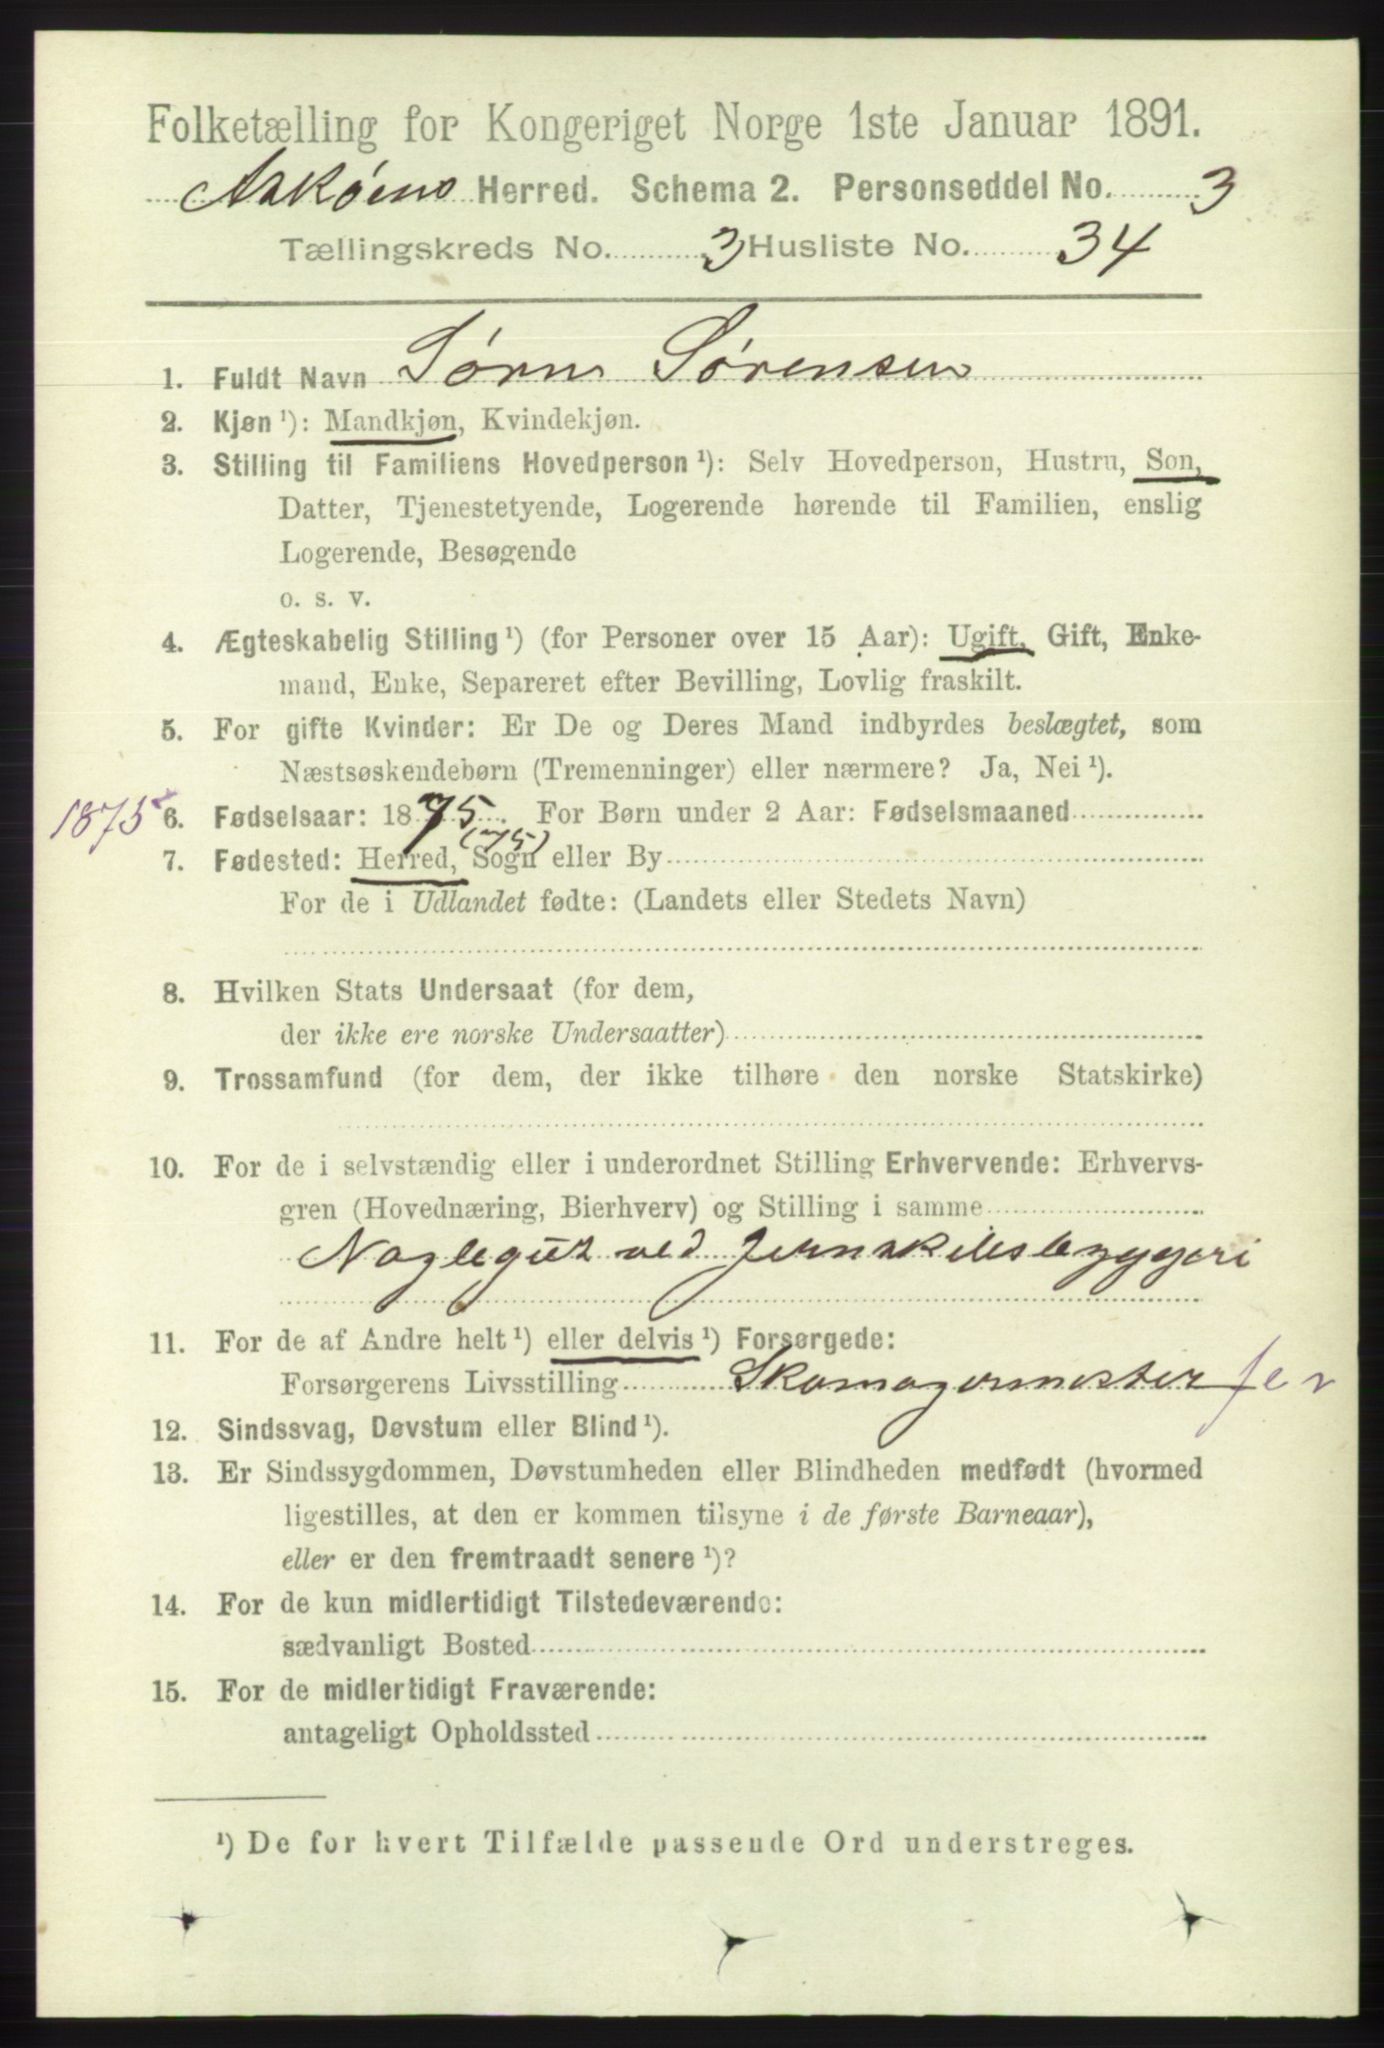 Folketælling for Kongeriget Norge 1ste Januar 1891.
Askøens Herred. Schema 2. Personseddel No. 3
Tællingskreds No. 3 Husliste No. 34
1. Fuldt Navn Sørn Sørensen
2. Kjøn¹): Mandkjøn, Kvindekjøn.
3. Stilling til Familiens Hovedperson¹): Selv Hovedperson, Hustru, Son,
Datter, Tjenestetyende, Logerende hørende til Familien, enslig
Logerende, Besøgende
o. s. v.
4. Ægteskabelig Stilling¹) (for Personer over 15 Aar): Ugift, Gift, Enke-
mand, Enke, Separeret efter Bevilling, Lovlig fraskilt.
5. For gifte Kvinder: Er De og Deres Mand indbyrdes beslægtet, som
Næstsøskendebørn (Tremenninger) eller nærmere? Ja, Nei¹).
1875 6. Fødselsaar: 1875. For Børn under 2 Aar: Fødselsmaaned
(75)
7. Fødested: Herred, Sogn eller By
For de i Udlandet fødte: (Landets eller Stedets Navn)
8. Hvilken Stats Undersaat (for dem,
der ikke ere norske Undersaatter)
9. Trossamfund (for dem, der ikke tilhøre den norske Statskirke)
10. For de i selvstændig eller i underordnet Stilling Erhvervende: Erhvervs-
gren (Hovednæring, Bierhverv) og Stilling i samme
Naglegut ved Jernskibsbyggeri
11. For de af Andre helt¹) eller delvis¹) Forsørgede:
Forsørgerens Livsstilling Skomagermester
12. Sindssvag, Døvstum eller Blind¹).
13. Er Sindssygdommen, Døvstumheden eller Blindheden medfødt (hvormed
ligestilles, at den er kommen tilsyne i de første Barneaar),
eller er den fremtraadt senere¹)?
14. For de kun midlertidigt Tilstedeværende:
sædvanligt Bosted
15. For de midlertidigt Fraværende:
antageligt Opholdssted
¹) De for hvert Tilfælde passende Ord understreges.